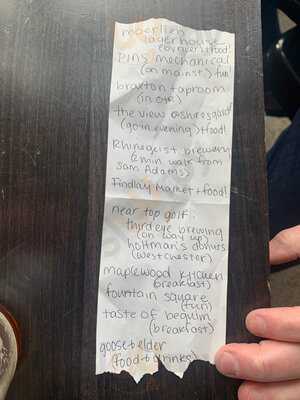 moerlien
lagerhouse
(burgers+food!
PINS mechanical
(on main st.) fun!
braxton taproom
(in OTR)
the view @shires garden
(go in evening)+food!
Rhinegeist brewery
(2 min walk from
Sam Adams)
Findlay Market+food!
near top golf:
third eye brewing
(on way up)
holtman's donuts
(west chester)
maplewood kitchen
(breakfast)
fountain square
(fun)
taste of belguim
(breakfast)
goose+elder
(food+drinks)